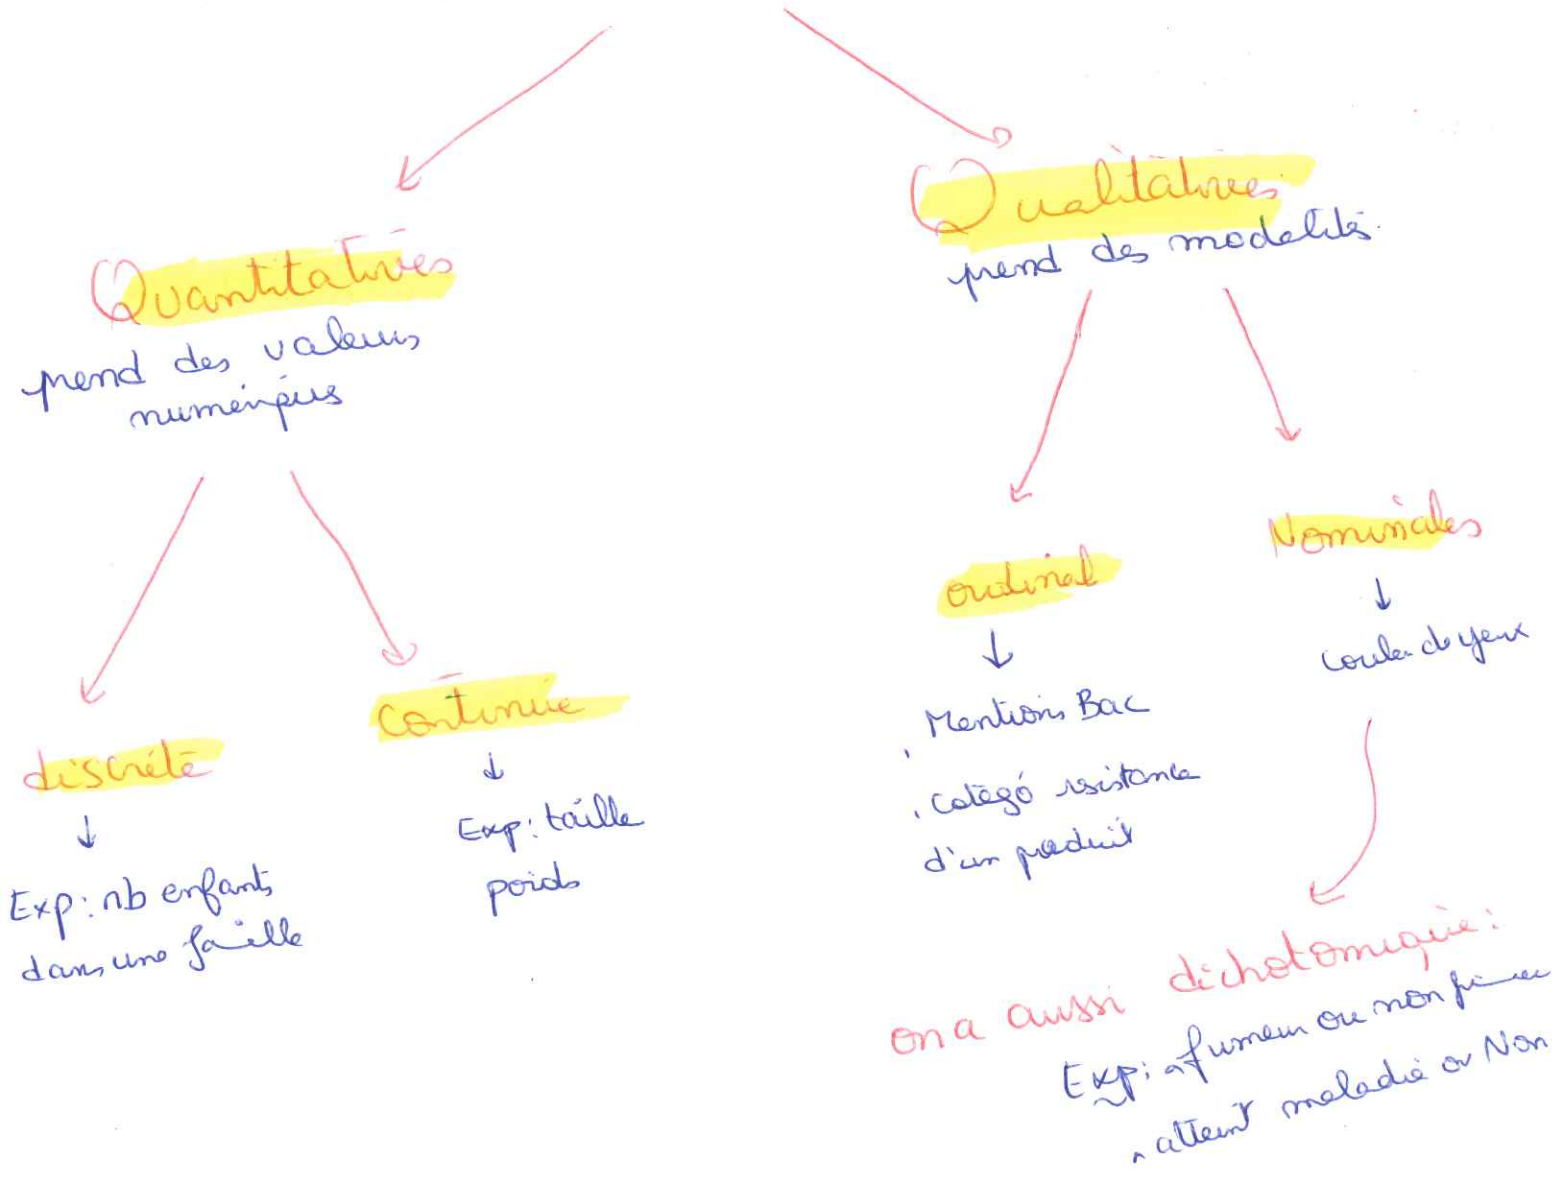 Quantitatives
prend des valeurs
numériques
discrète
↓
Exp: nb enfants
dans une faille
continue
↓
Exp: taille
poids
Qualitatives
prend des modalités
ordinal
↓
Mentions Bac
. catégo resistance
d'un produit
Nominales
↓
couleu de yeux
on a aussi dichotomique:
Exp: - fumeur ou non fumeur
- atteint maladie ou Non